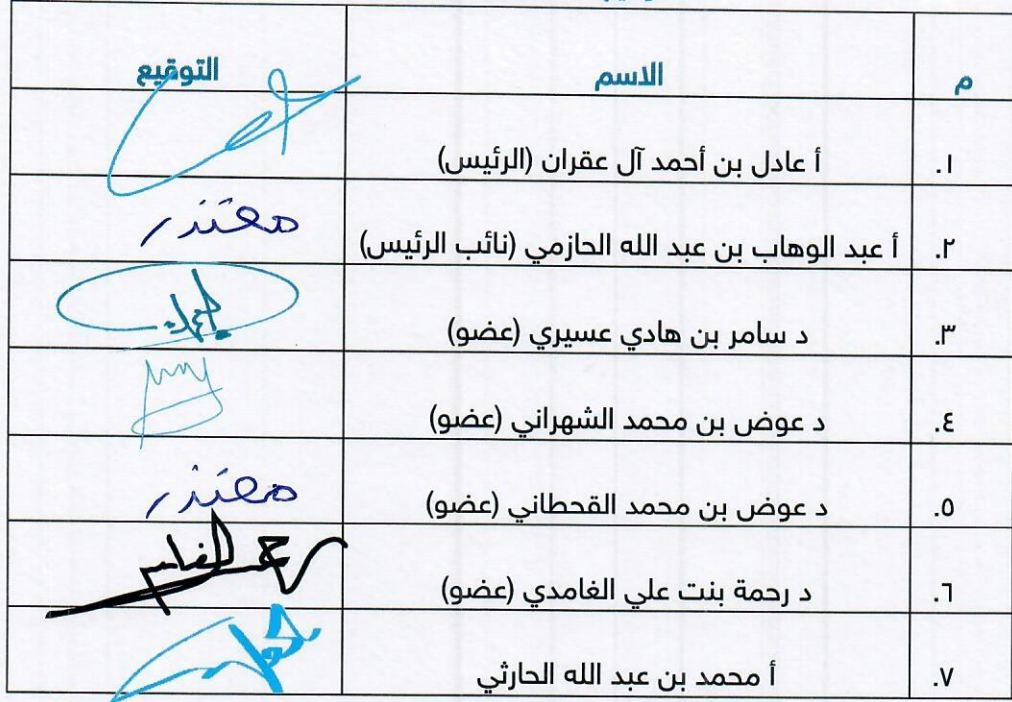 م الاسم التوقيع
١. أ عادل بن أحمد آل عقران (الرئيس)
٢. أ عبد الوهاب بن عبد الله الحازمي (نائب الرئيس) معتذر
٣. د سامر بن هادي عسيري (عضو)
٤. د عوض بن محمد الشهراني (عضو)
٥. د عوض بن محمد القحطاني (عضو) معتذر
٦. د رحمة بنت علي الغامدي (عضو)
٧. أ محمد بن عبد الله الحارثي